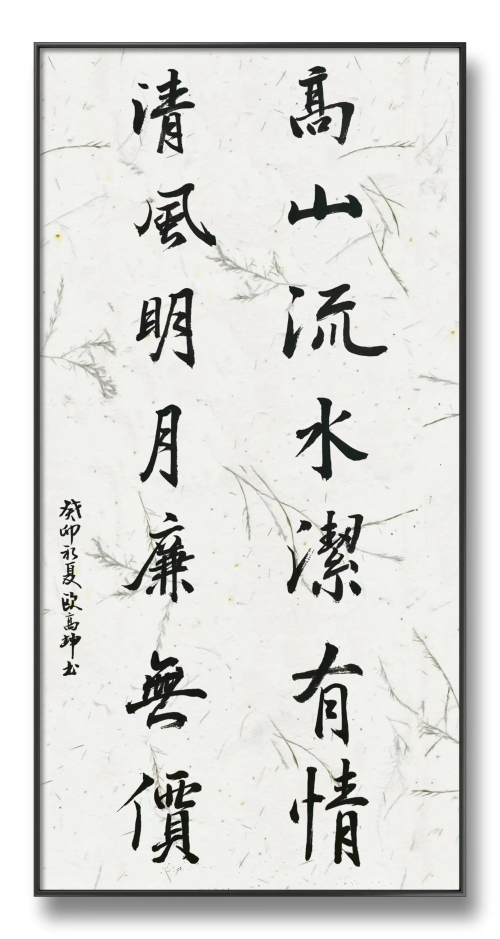 高山流水潔有情
清風明月廉無價
癸卯初夏歐高坤书